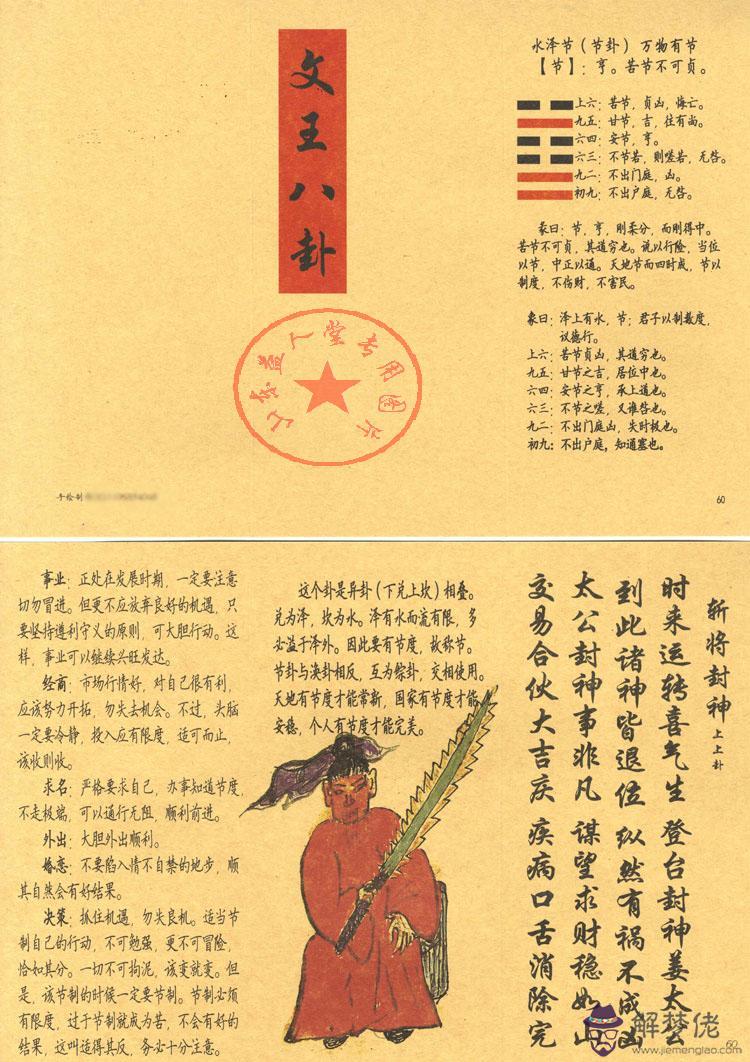 文王八卦
水泽节（节卦）万物有节
【节】：亨。苦节不可贞。
上六：苦节，贞凶，悔亡。
九五：甘节，吉，往有尚。
六四：安节，亨。
六三：不节若，则嗟若，无咎。
九二：不出门庭，凶。
初九：不出户庭，无咎。
彖曰：节，亨，刚柔分，而刚得中。
苦节不可贞，其道穷也。说以行险，当位
以节，中正以通。天地节而四时成，节以
制度，不伤财，不害民。
象曰：泽上有水，节；君子以制数度，
议德行。
上六：苦节贞凶，其道穷也。
九五：甘节之吉，居位中也。
六四：安节之亨，承上道也。
六三：不节之嗟，又谁咎也。
九二：不出门庭凶，失时极也。
初九：不出户庭，知通塞也。
堂专用图片
手绘制
60
事业：正处在发展时期，一定要注意
切勿冒进。但更不应放弃良好的机遇，只
要坚持遵利守义的原则，可大胆行动。这
样，事业可以继续兴旺发达。
经商：市场行情好，对自己很有利，
应该努力开拓，勿失去机会。不过，头脑
一定要冷静，投入应有限度，适可而止，
该收则收。
求名：严格要求自己，办事知道节度，
不走极端，可以通行无阻，顺利前进。
外出：大胆外出顺利。
婚恋：不要陷入情不自禁的地步，顺
其自然会有好结果。
决策：抓住机遇，勿失良机。适当节
制自己的行动，不可勉强，更不可冒险，
恰如其分。一切不可拘泥，该变就变。但
是，该节制的时候一定要节制。节制必须
有限度，过于节制就成为苦，不会有好的
结果，这叫适得其反，务必十分注意。
这个卦是异卦（下兑上坎）相叠。
兑为泽，坎为水。泽有水而流有限，多
必溢于泽外。因此要有节度，故称节。
节卦与涣卦相反，互为综卦，交相使用。
天地有节度才能常新，国家有节度才能
安稳，个人有节度才能完美。
斩将封神 上上卦
时来运转喜气生 登台封神姜太公
到此诸神皆退位 纵然有祸不成凶
太公封神事非凡 谋望求财稳如山
交易合伙大吉庆 疾病口舌消除完
60
解梦佬
www.jiemenglao.com